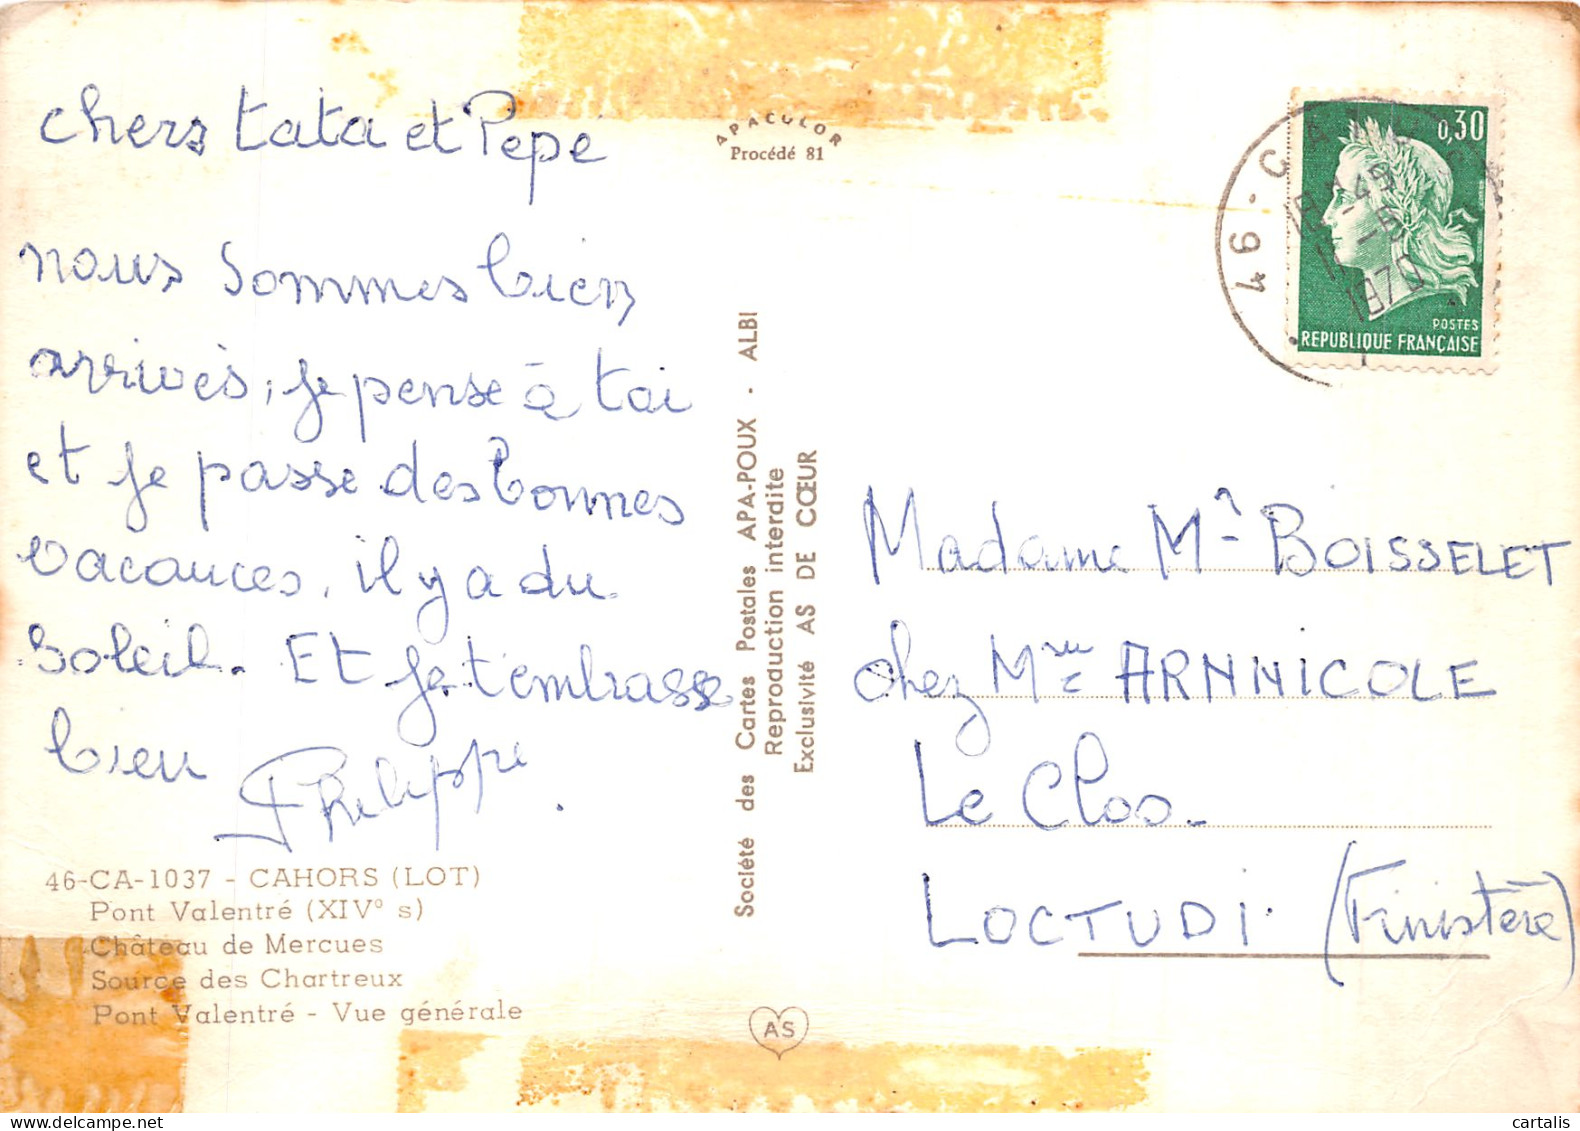 chers tata et Pepe
nous sommes bien
arrivés, je pense à toi
et je passe des bonnes
vacances, il y a du
soleil. Et je t'embrasse
bien
Philippe.
46-CA-1037 - CAHORS (LOT)
Pont Valentré (XIVº s)
Château de Mercues
Source des Chartreux
Pont Valentré - Vue générale
APACULOR
Procédé 81
Société des Cartes Postales APA-POUX - ALBI
Reproduction interdite
Exclusivité AS DE CŒUR
AS
46 - CA
18H45
11 -6
1970
0,30
POSTES
REPUBLIQUE FRANÇAISE
Madame BOISSELET
chez ARNNICOLE
Le Clos
LOCTUDI (Finistère)
cartalis